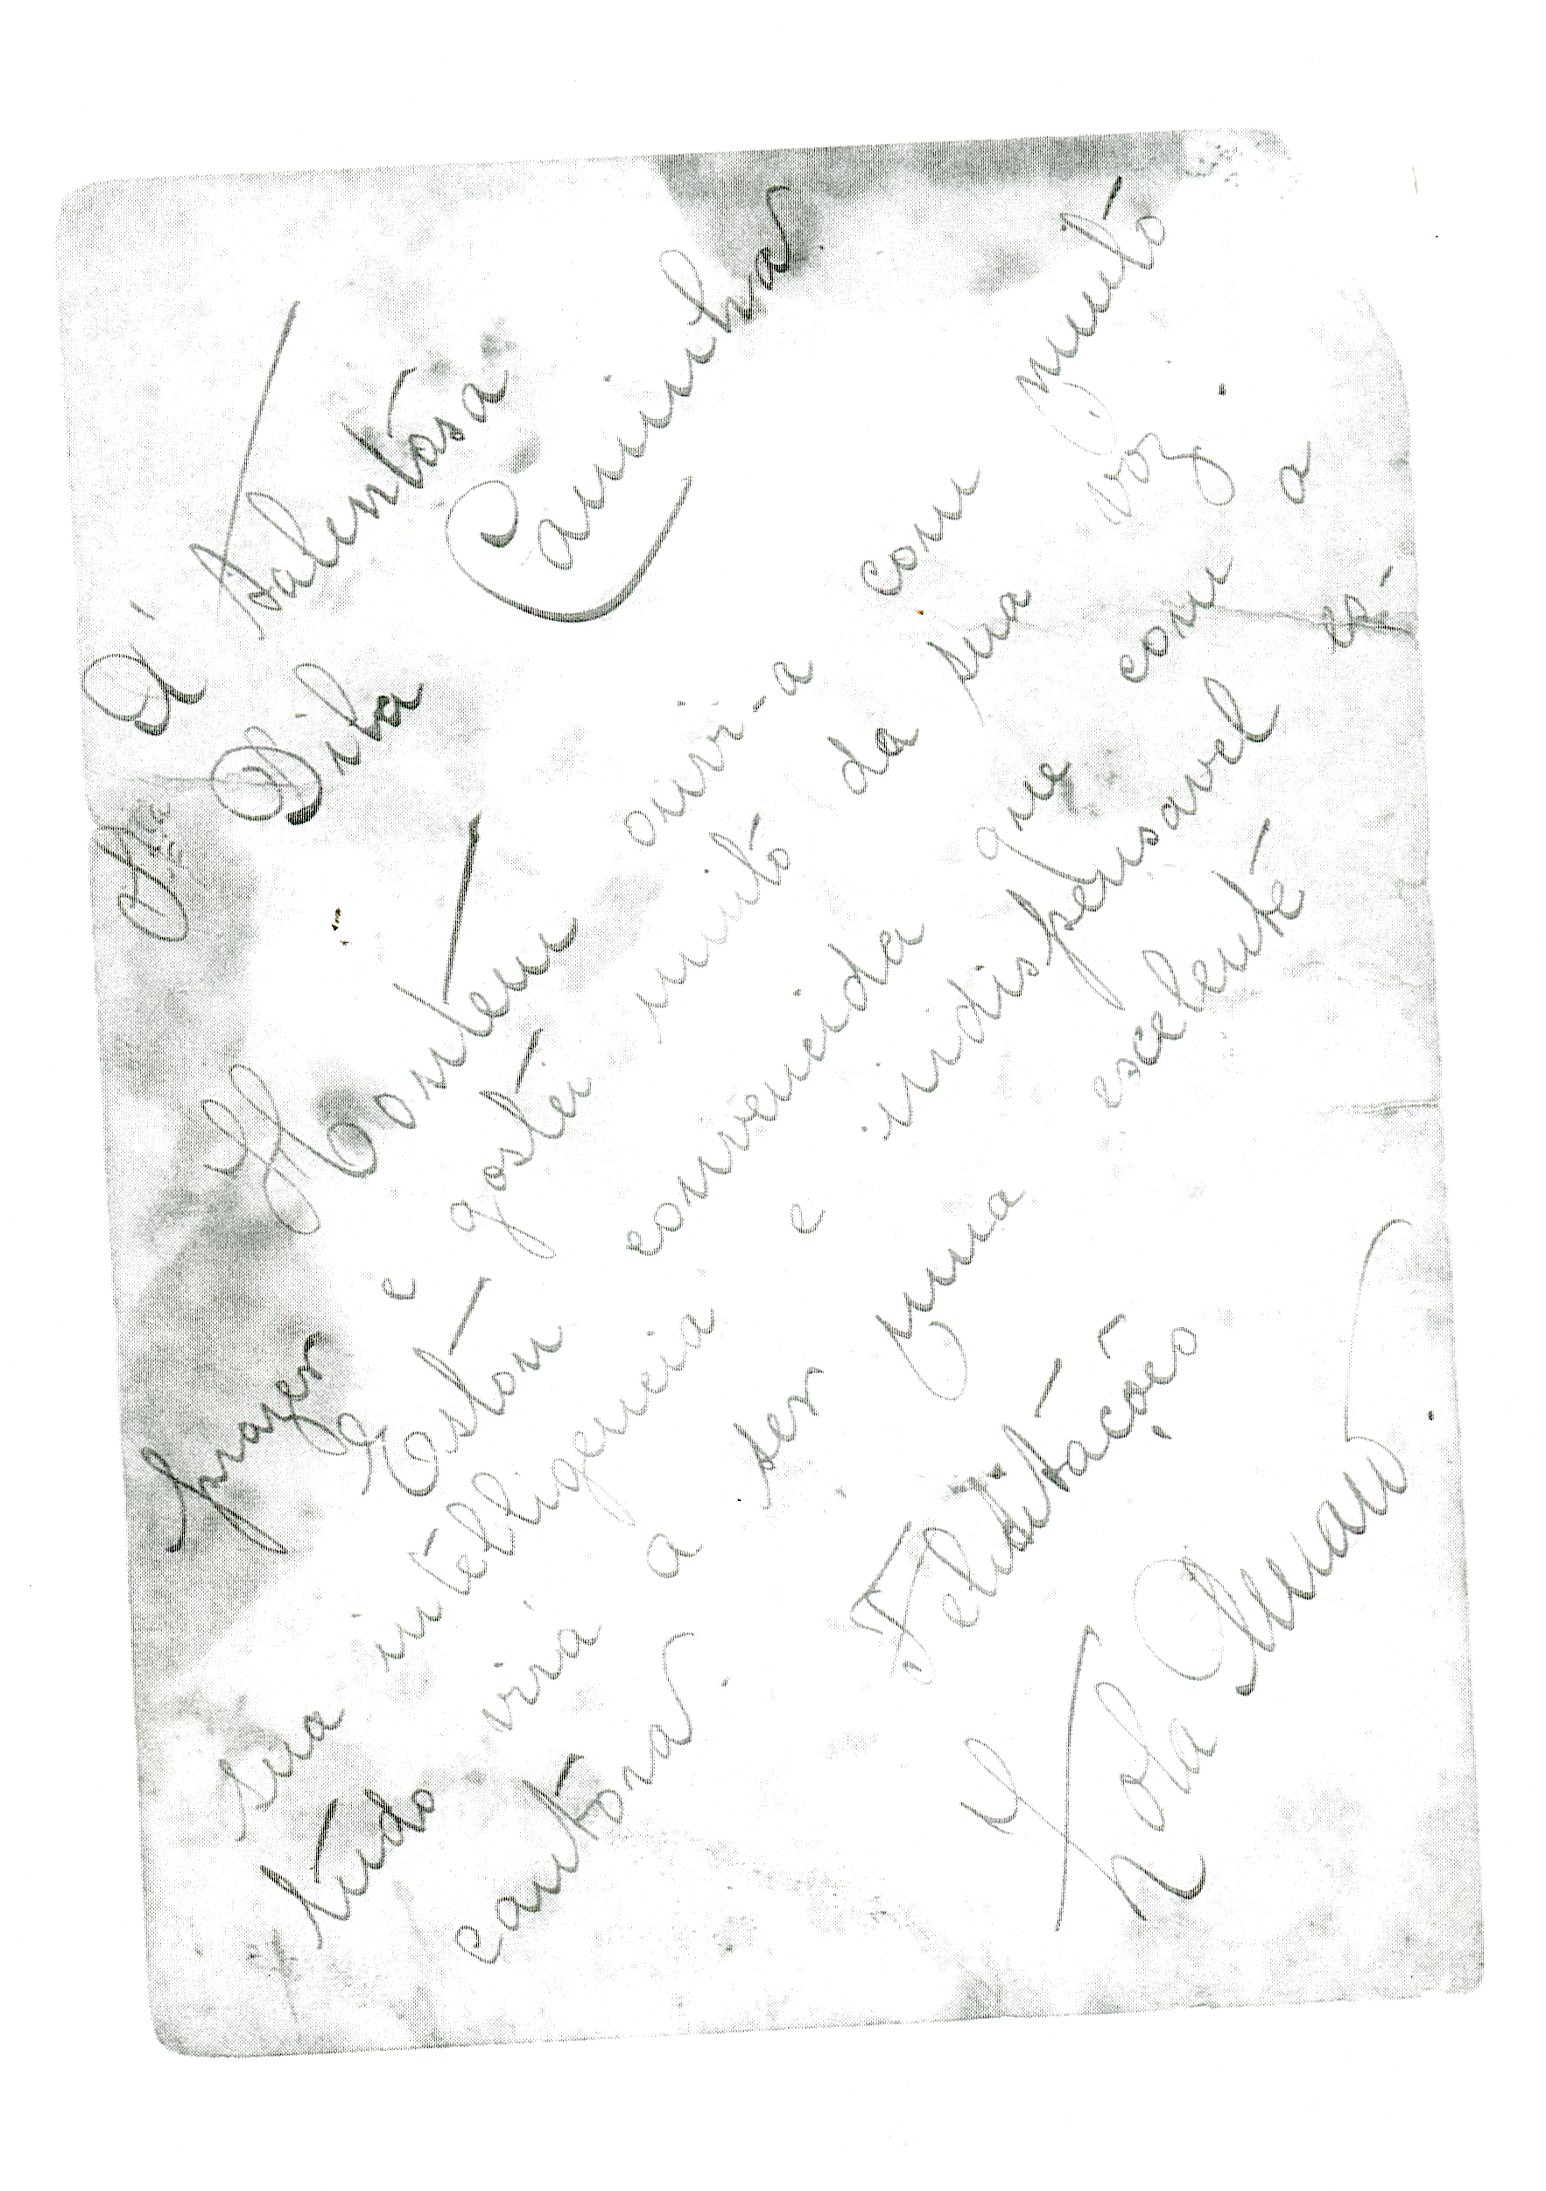 Á talentosa
Sra Dila Caminha.
Hontem ouvi-a com muito
prazer e gostei muito da sua voz.
Estou convencida que com a
sua intelligencia e indispensavel es-
tudo virá a ser uma excelente
cantora.
Felicitações
Zola Amaro.